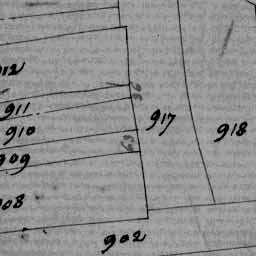 912
911
910
909
908
917
918
902